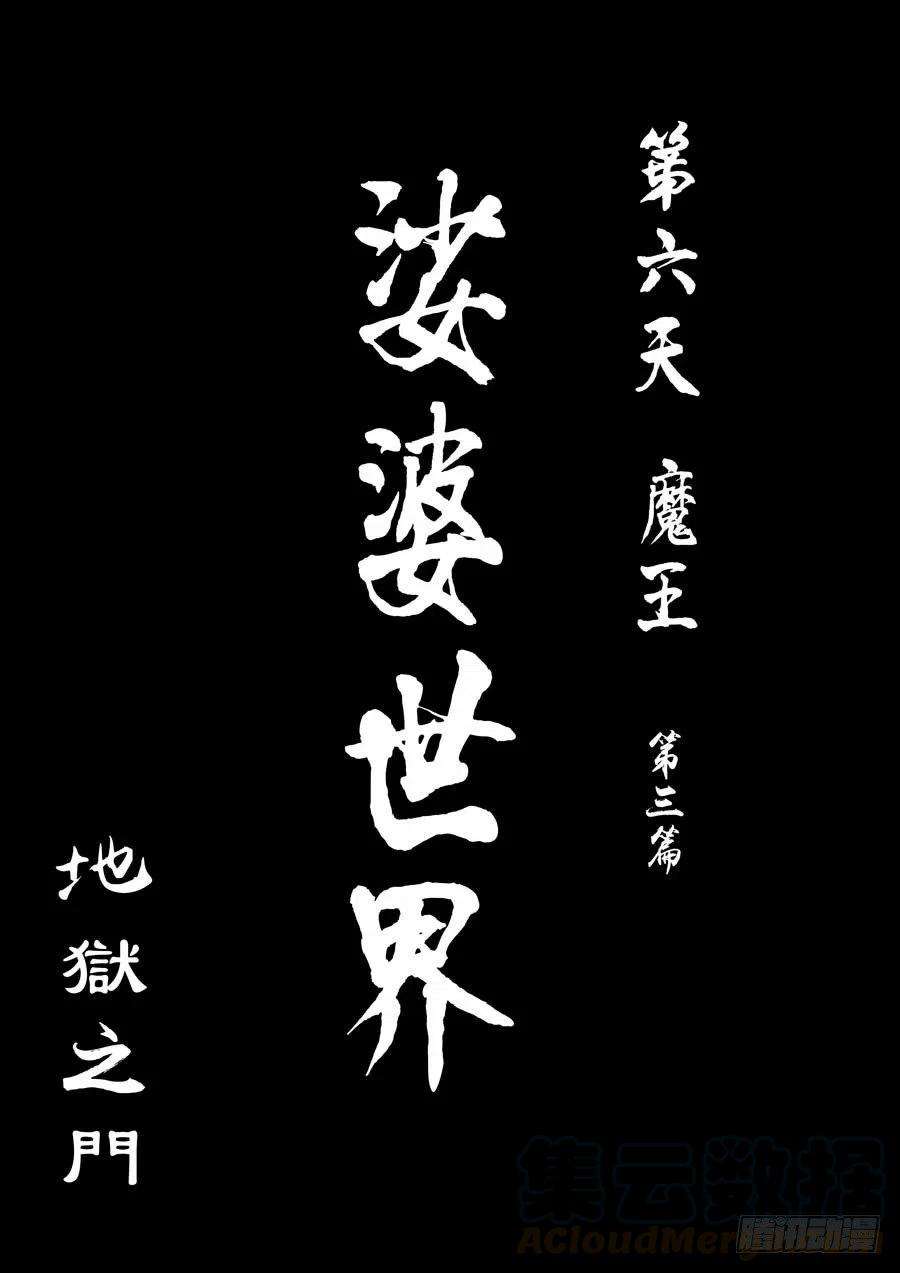 第六天 魔王 第三篇
娑婆世界
地獄之門
集云数据
acloudmerge.com
腾讯动漫